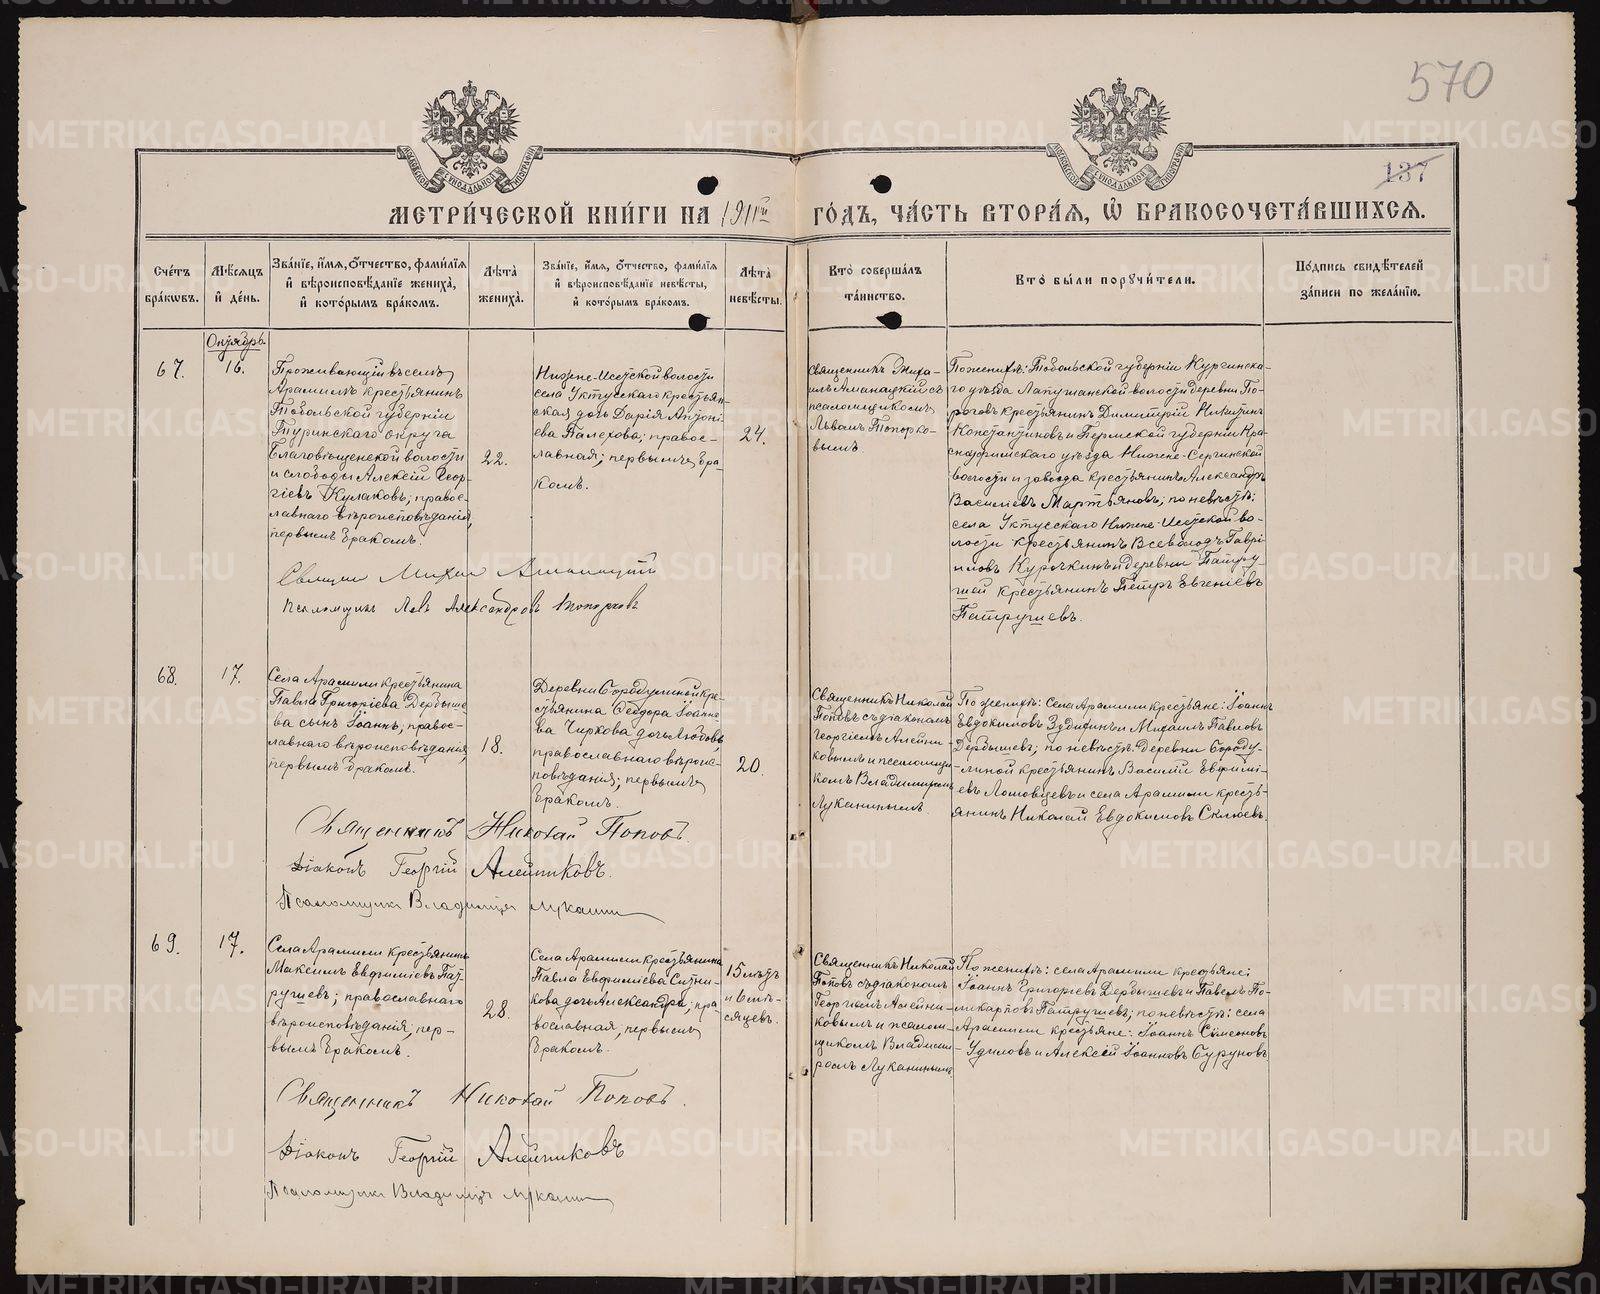 570
137
МЕТРИ́ЧЕСКОЙ КНИ́ГИ НА 1911й ГО́ДЪ, ЧА́СТЬ ВТОРА́Я, Ѡ БРАКОСОЧЕТА́ВШИХСЯ.
Сче́тъ бра́кѡвъ.
Мѣ́сяцъ и де́нь.
Зва́нїе, и́мя, ѻ́тчество, фами́лїя и вѣроисповѣ́данїе жениха̀, и кото́рымъ бра́комъ.
Лѣта̀ жениха̀.
Зва́нїе, и́мя, ѻ́тчество, фами́лїя и вѣроисповѣ́данїе невѣ́сты, и кото́рымъ бра́комъ.
Лѣта̀ невѣ́сты.
Кто̀ соверша́лъ та́инство.
Кто̀ бы́ли порꙋчи́тели.
По́дпись свидѣ́телей за́писи по жела́нїю.
Октябрь
67.
16.
Проживающій въ селѣ
Арамилѣ крестьянинъ
Тобольской губерніи
Туринскаго округа
Благовѣщенской волости
и слободы Алексій Геор-
гіевъ Кулаковъ, правос-
лавнаго вѣроисповѣданія,
первымъ бракомъ.
22.
Нижне-Исетской волости
села Уктусскаго крестьян-
ская дочь Дарія Антоні-
ева Палехова; правос-
лавная; первымъ бра-
комъ.
24.
Священникъ Миха-
илъ Ашанацкій съ
псаломщикомъ
Львомъ Топорко-
вымъ
По женихѣ: Тобольской губерніи Курганска-
го уѣзда Лапушанской волости деревни По-
роговъ крестьянинъ Димитрій Никитинъ
Константиновъ и Пермской губерніи Кра-
сноуфимскаго уѣзда Нижне-Сергинской
волости и завода крестьянинъ Александръ
Васильевъ Мартьяновъ; по невѣстѣ:
села Уктусскаго Нижне-Исетской во-
лости крестьянинъ Всеволодъ Гаврі-
иловъ Курочкинъ и деревни Патру-
шей крестьянинъ Петръ Евгеніевъ
Патрушевъ.
Псаломщикъ Левъ Александровъ Топорковъ
68.
17.
Села Арамили крестьянина
Павла Григоріева Дербыше-
ва сынъ Іоаннъ, правос-
лавнаго вѣроисповѣданія,
первымъ бракомъ.
18.
Деревни Бородулиной кре-
стьянина Ѳеодора Іоанно-
ва Чиркова дочь Любовь,
православнаго вѣроис-
повѣданія; первымъ
бракомъ.
20.
Священникъ Николай
Поповъ съ діакономъ
Георгіемъ Алейни-
ковымъ и псаломщи-
комъ Владиміромъ
Луканинымъ
По женихѣ: села Арамили крестьяне: Іоаннъ
Евдокимовъ и Михаилъ Павловъ
Дербышевъ; по невѣстѣ: деревни Бороду-
линой крестьянинъ Василій Евфимі-
евъ Ломовцевъ и села Арамили кресть-
янинъ Николай Евдокимовъ
Священникъ Николай Поповъ.
Діаконъ Георгій Алейниковъ.
Псаломщикъ Владиміръ Луканин
69.
17.
Села Арамили крестьянинъ
Максимъ Евфиміевъ Пат-
рушевъ; православнаго
вѣроисповѣданія, пер-
вымъ бракомъ.
28.
Села Арамили крестьянина
Павла Евфиміева Ситни-
кова дочь Александра; пра-
вославная, первымъ
бракомъ.
15 лѣтъ
и 6 мѣ-
сяцевъ.
Священникъ Николай
Поповъ съ діакономъ
Георгіемъ Алейни-
ковымъ и псалом-
щикомъ Владими-
ромъ Луканинымъ
По женихѣ: села Арамили крестьяне:
Іоаннъ Григоріевъ Дербышевъ и Павелъ По-
ликарповъ Патрушевъ; по невѣстѣ: села
Арамили крестьяне: Іоаннъ Симеоновъ
Удиловъ и Алексій Іоанновъ Суруновъ
Священникъ Николай Поповъ.
Діаконъ Георгій Алейниковъ
Псаломщикъ Владиміръ Луканин
METRIKI.GASO-URAL.RU